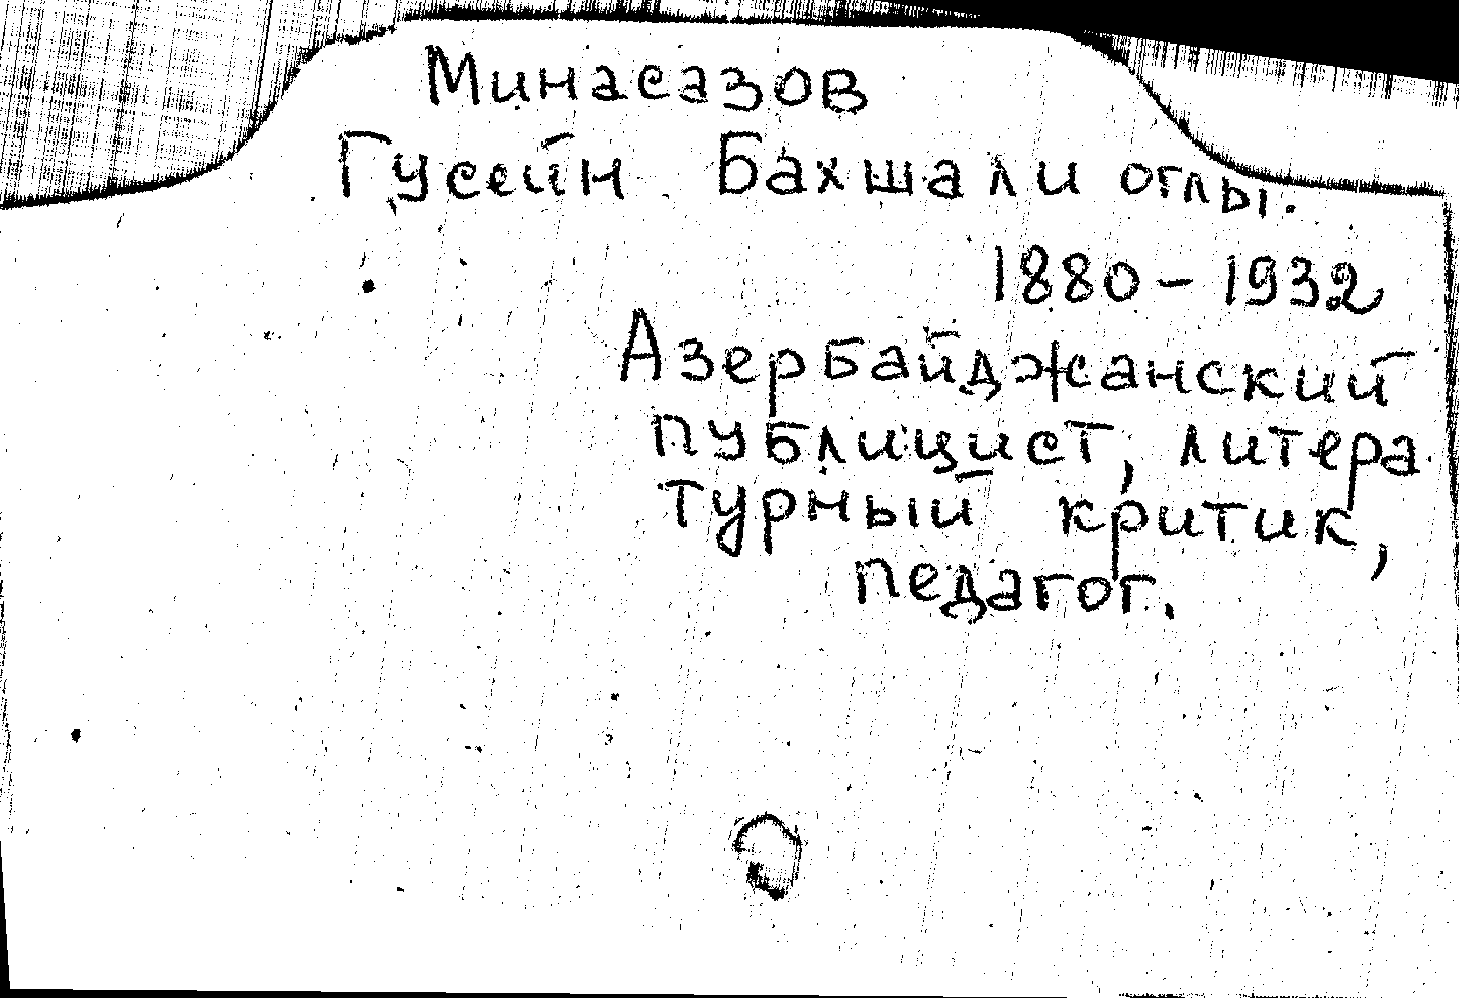 Минасазов
Гусейн Бахшали оглы.
1880-1932
Азербайджанский
публицист, литера
турный критик,
педагог.